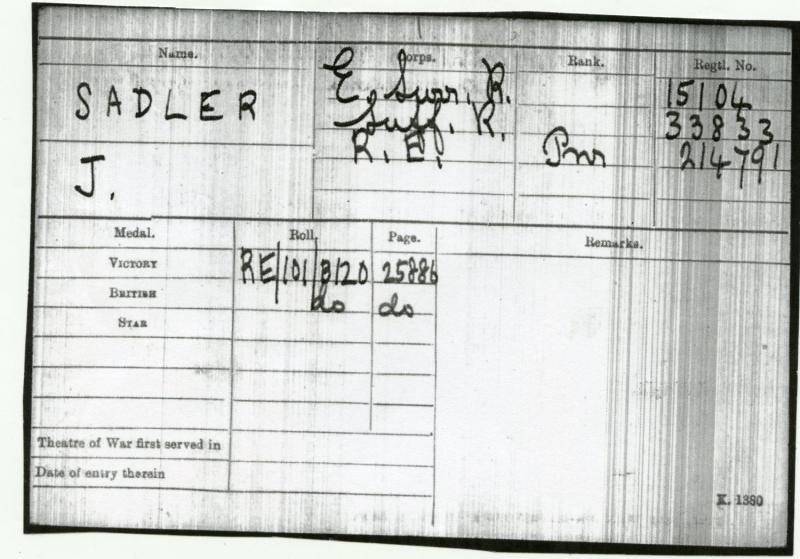 Name. Corps. Rank. Regtl. No.
SADLER E. Surr. R. 15104
Suff. R. 33833
J. R. E. Pnr 214791
Medal. Roll. Page. Remarks.
VICTORY RE/101/B120 25886
BRITISH do do
STAR
Theatre of War first served in
Date of entry therein
K. 1380